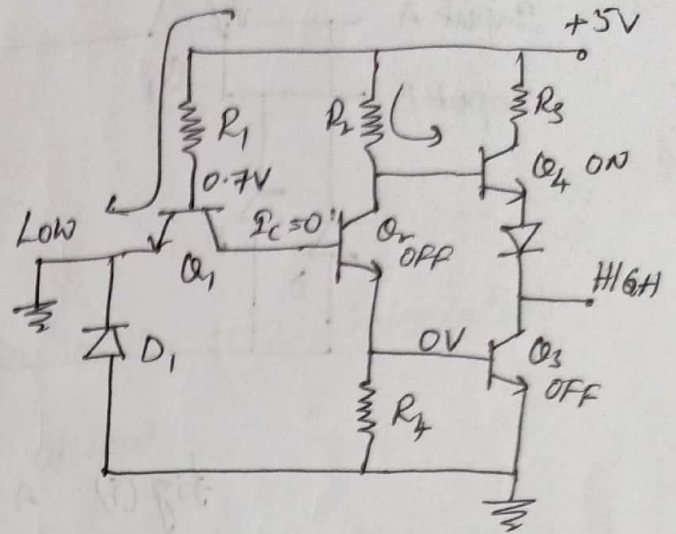 +5V
R1
R2
R3
0.7V
Q4 ON
LOW
IC=0
Q2
OFF
Q1
HIGH
D1
0V
Q3
OFF
R4